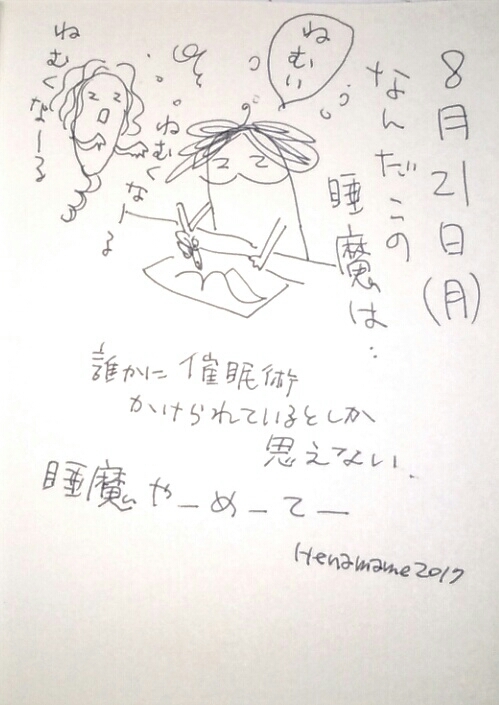 8月21日(月)
なんだこの
睡魔は…
ねむい
ねむくなーる
ねむくなーる
誰かに催眠術
かけられているとしか
思えない.
睡魔やーめーてー
Henamame2017